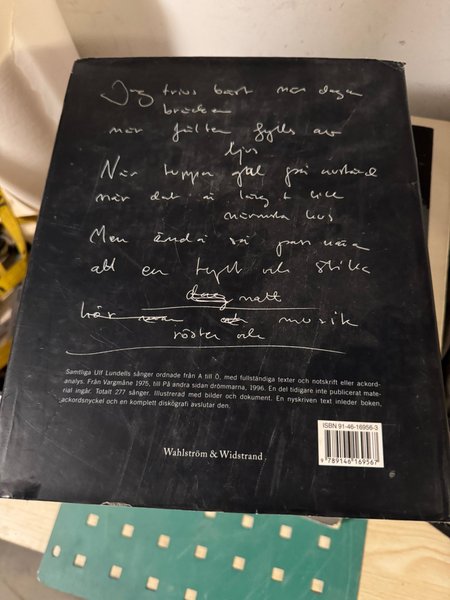 Jag trivs bäst när dagen
bräcker
när fälten fylls av
ljus
När tuppar gal på avstånd
när det är långt till
närmsta hus
Men ändå så pass nära
att en tyst och stilla
natt
hör
röster och musik
Samtliga Ulf Lundells sånger ordnade från A till Ö, med fullständiga texter och notskrift eller ackord-
analys. Från Vargmåne 1975, till På andra sidan drömmarna, 1996. En del tidigare inte publicerat mate-
rial ingår. Totalt 277 sånger. Illustrerad med bilder och dokument. En nyskriven text inleder boken,
ackordsnyckel och en komplett diskografi avslutar den.
ISBN 91-46-16956-3
9 789146 169567
Wahlström & Widstrand